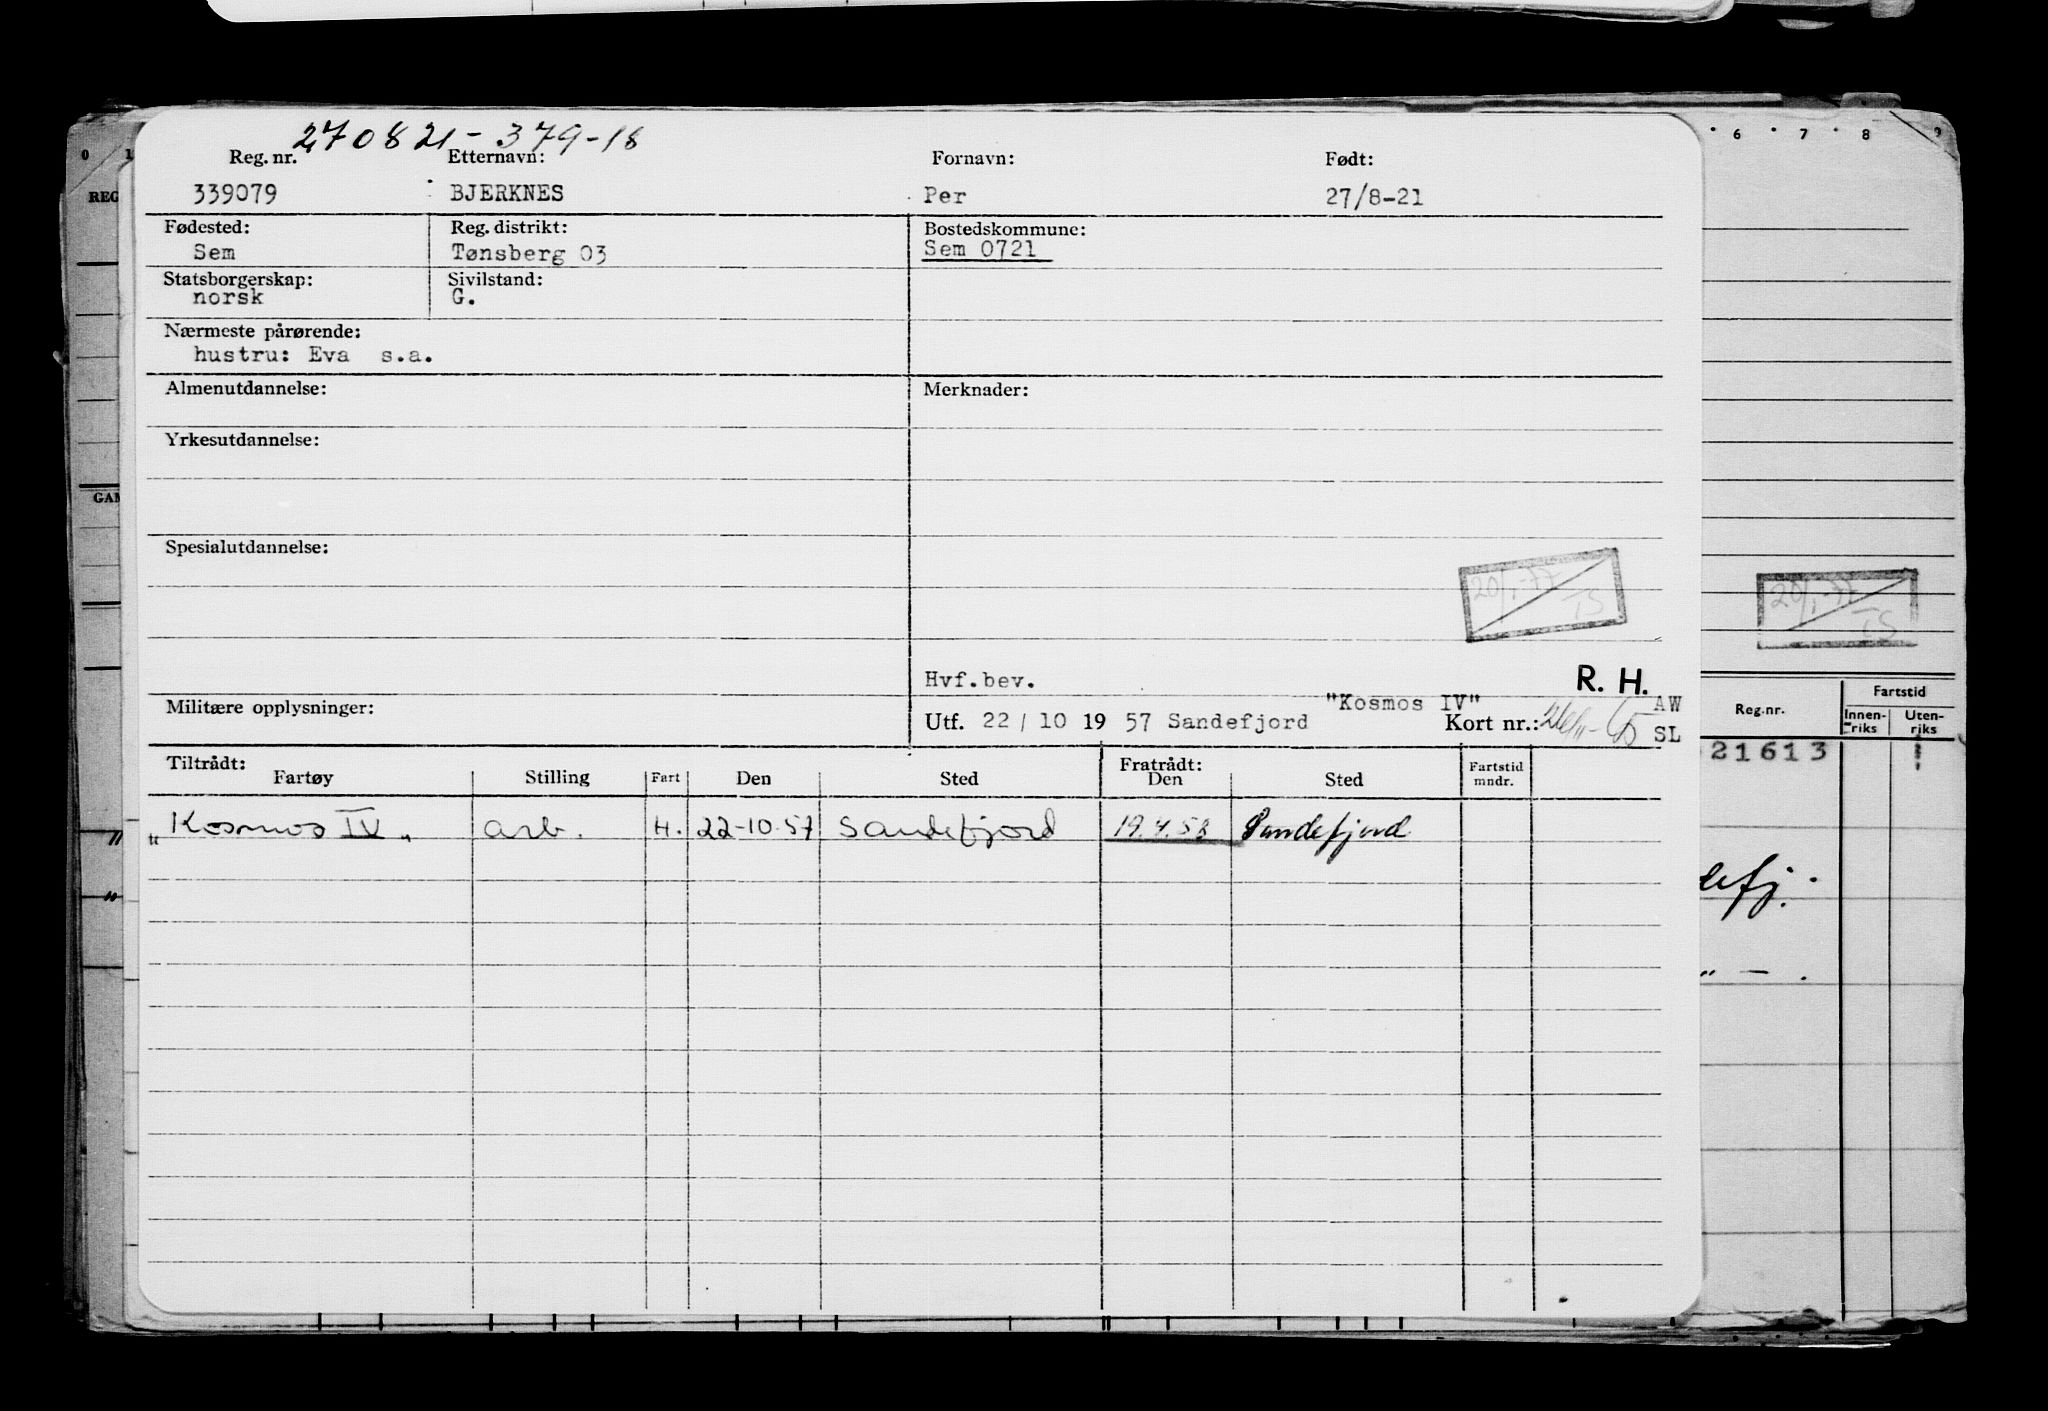 270821-379-18
Reg. nr. Etternavn: Fornavn: Født:
339079 BJERKNES Per 27/8-21
Fødested: Reg. distrikt: Bostedskommune:
Sem Tønsberg 03 Sem 0721
Statsborgerskap: Sivilstand:
norsk G.
Nærmeste pårørende:
hustru: Eva s.a.
Almenutdannelse: Merknader:
Yrkesutdannelse:
Spesialutdannelse:
20/1-77
TS
Hvf.bev. R. H.
Militære opplysninger: "Kosmos IV" AW
Utf. 22 / 10 19 57 Sandefjord Kort nr.: SL
Tiltrådt: Fratrådt:
Fartøy Stilling Fart Den Sted Den Sted Fartstid mndr.
"Kosmos IV" arb. H. 22-10-57 Sandefjord 19.4.58 Sandefjord
0 1
REG
GAM
" 
"
6 7 8 9
20/1-77
TS
Reg.nr. Fartstid
Innen-riks Uten-riks
21613
defj.
" — .